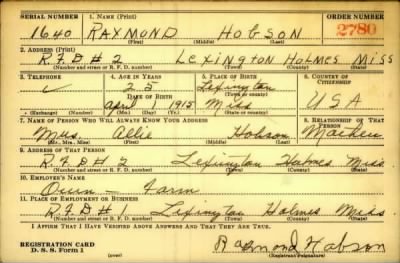 SERIAL NUMBER 1. NAME (Print) ORDER NUMBER
1640 RAYMOND HOBSON 2780
(First) (Middle) (Last)
2. ADDRESS (Print)
R.F.D # 2 LEXINGTON HOLMES MISS
(Number and street or R. F. D. number) (Town) (County) (State)
3. TELEPHONE 4. AGE IN YEARS 5. PLACE OF BIRTH 6. COUNTRY OF CITIZENSHIP
25 Lexington
DATE OF BIRTH (Town or county)
April 1 1915 Miss U S A
(Exchange) (Number) (Mo.) (Day) (Yr.) (State or country)
7. NAME OF PERSON WHO WILL ALWAYS KNOW YOUR ADDRESS 8. RELATIONSHIP OF THAT PERSON
Mrs. Allie Hobson
(Mr., Mrs., Miss) (First) (Middle) (Last)
9. ADDRESS OF THAT PERSON
R.F.D # 2 Lexington Holmes Miss
(Number and street or R. F. D. number) (Town) (County) (State)
10. EMPLOYER'S NAME
Own - Farm
11. PLACE OF EMPLOYMENT OR BUSINESS
R.F.D # 1 Lexington Holmes Miss.
(Number and street or R. F. D. number) (Town) (County) (State)
I AFFIRM THAT I HAVE VERIFIED ABOVE ANSWERS AND THAT THEY ARE TRUE.
REGISTRATION CARD
D. S. S. Form 1 (over) Raymond Hobson
(Registrant's signature)